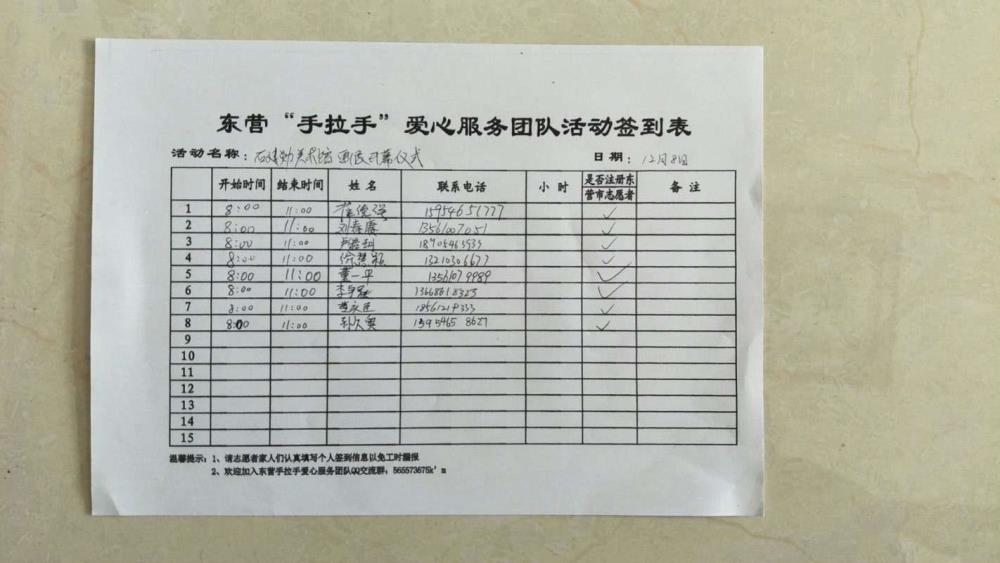 东营“手拉手”爱心服务团队活动签到表
活动名称：石 美术馆 画展开幕仪式 日期：12月8日
开始时间 结束时间 姓名 联系电话 小时 是否注册东营市志愿者 备注
1 8:00 11:00 15954651777 ✓
2 8:00 11:00 刘春 13561007051 ✓
3 8:00 11:00 18705463933 ✓
4 8:00 11:00 徐慧 13210306677 ✓
5 8:00 11:00 董一平 13561079989 ✓
6 8:00 11:00 李 13668618323 ✓
7 8:00 11:00 18561214333 ✓
8 8:00 11:00 15954658627 ✓
9
10
11
12
13
14
15
温馨提示：1、请志愿者家人们认真填写个人签到信息以免工时漏报
2、欢迎加入东营手拉手爱心服务团队QQ交流群：565573675k'm